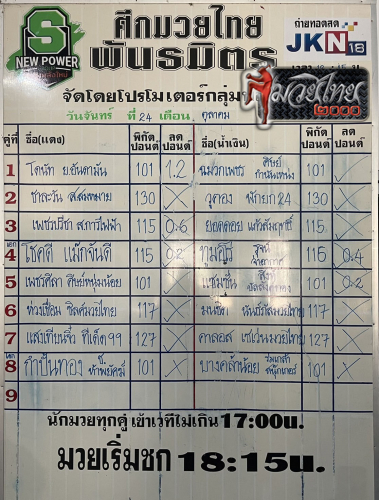 S
NEW POWER
ศึกมวยไทย
พันธมิตร
ถ่ายทอดสด
JKN18
มวยไทย
2000
จัดโดยโปรโมเตอร์กลุ่ม
วันจันทร์ ที่ 24 เดือน ตุลาคม
คู่ที่ ชื่อ(แดง) พิกัด ปอนด์ ลด ปอนด์ ชื่อ(น้ำเงิน) พิกัด ปอนด์ ลด ปอนด์
1 โดนัท ย.อันดามัน 101 1.2 ฉมวกเพชร ศิษย์กำนันเหน่ง 101
2 ชาละวัน ส.สมหมาย 130 X วูคอง พักยก24 130 X
3 เพชรปรีชา ส.การไฟฟ้า 115 0.6 ยอดดอย แก้วสัมฤทธิ์ 115 X
เอก 4 โชคดี แม็กจันดี 115 0.2 115 0.4
5 เพชรศิลา ศิษย์หนุ่มน้อย 101 แชมชั่น 101 0.2
6 117 X 117 X
7 แสงเทียนจิ๋ว ทีเด็ด99 127 X คาลอส เซเว่นมวยไทย 127 X
8 กำปั่นทอง ช.ห้าพยัคฆ์ 101 X บางคล้าน้อย ร่มเกล้าสนุ๊กเกอร์ 101 X
9
นักมวยทุกคู่ เข้าเวทีไม่เกิน 17:00น.
มวยเริ่มชก 18:15น.